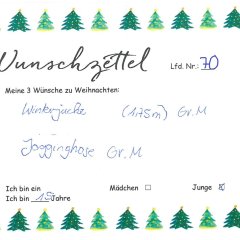 Wunschzettel Lfd. Nr.: 70
Meine 3 Wünsche zu Weihnachten:
Winterjacke (1,75m) Gr. M
Jogginghose Gr. M
Ich bin ein Mädchen ☐ Junge ☒
Ich bin 15 Jahre